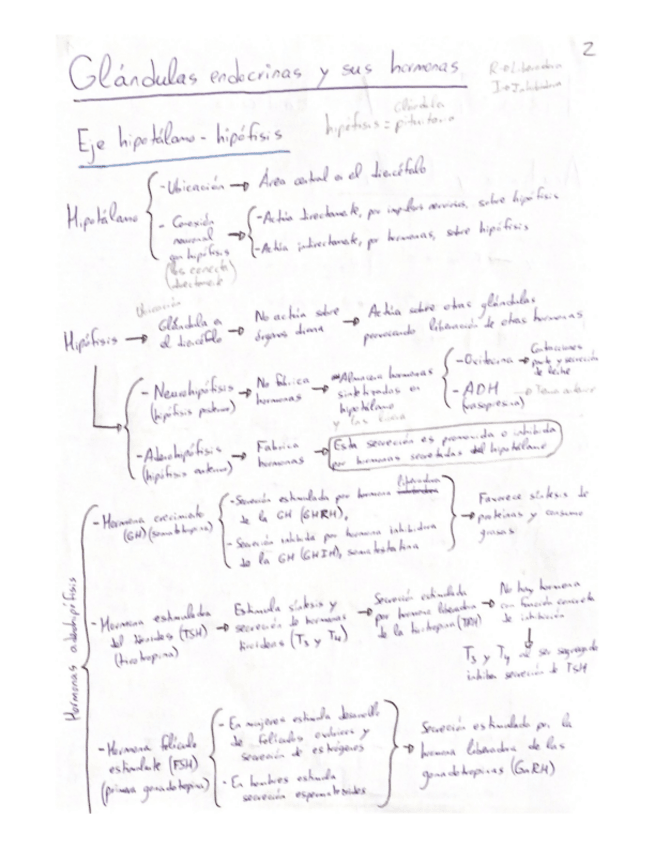 2
Glándulas endocrinas y sus hormonas
R→Liberadora
I→Inhibidora
Eje hipotálamo-hipófisis
hipófisis = glándula pituitaria
Hipotálamo
- Ubicación → Área central en el diencéfalo
- Conexión neuronal con hipófisis (los conecta directamente)
- Actúa directamente, por impulsos nerviosos, sobre hipófisis
- Actúa indirectamente, por hormonas, sobre hipófisis
Ubicación
Hipófisis → Glándula en el diencéfalo → No actúa sobre órganos diana → Actúa sobre otras glándulas provocando liberación de otras hormonas
- Neurohipófisis (hipófisis posterior) → No fabrica hormonas → Almacena hormonas sintetizadas en hipotálamo y las libera
- Oxitocina → Contracciones parto y secreción de leche
- ADH (vasopresina)
- Adenohipófisis (hipófisis anterior) → Fabrica hormonas → Esta secreción es promovida o inhibida por hormonas secretadas del hipotálamo
Hormonas adenohipófisis
- Hormona crecimiento (GH) (somatotropina)
- Secreción estimulada por hormona liberadora de la GH (GHRH),
- Secreción inhibida por hormona inhibidora de la GH (GHIH), somatostatina
→ Favorece síntesis de proteínas y consumo grasas
- Hormona estimuladora del tiroides (TSH) (tirotropina) → Estimula síntesis y secreción de hormonas tiroideas (T3 y T4) → Secreción estimulada por hormona liberadora de la tirotropina (TRH) → No hay hormona con función concreta de inhibición
T3 y T4 al ser segregada inhiben secreción de TSH
- Hormona folículo estimulante (FSH) (primera gonadotropina)
- En mujeres estimula desarrollo de folículos ováricos y secreción de estrógenos
- En hombres estimula secreción espermatozoides
→ Secreción estimulado por la hormona liberadora de las gonadotropinas (GnRH)